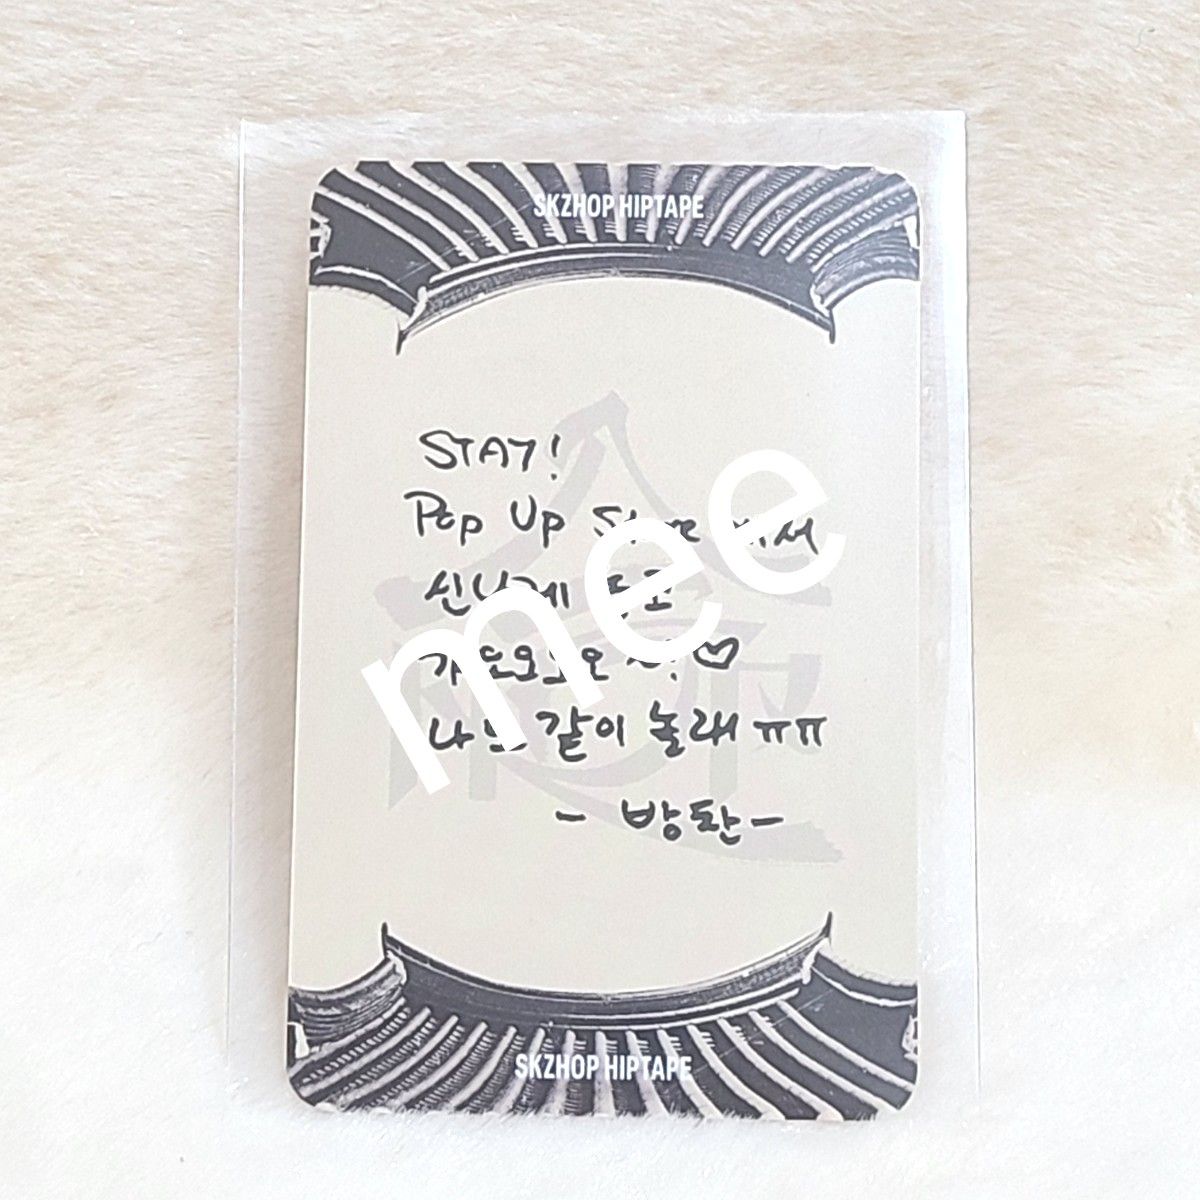 SKZHOP HIPTAPE
STAY!
Pop Up Store 에서
신나게
나도 같이 놀래 ㅠㅠ
- 방찬-
mee
SKZHOP HIPTAPE